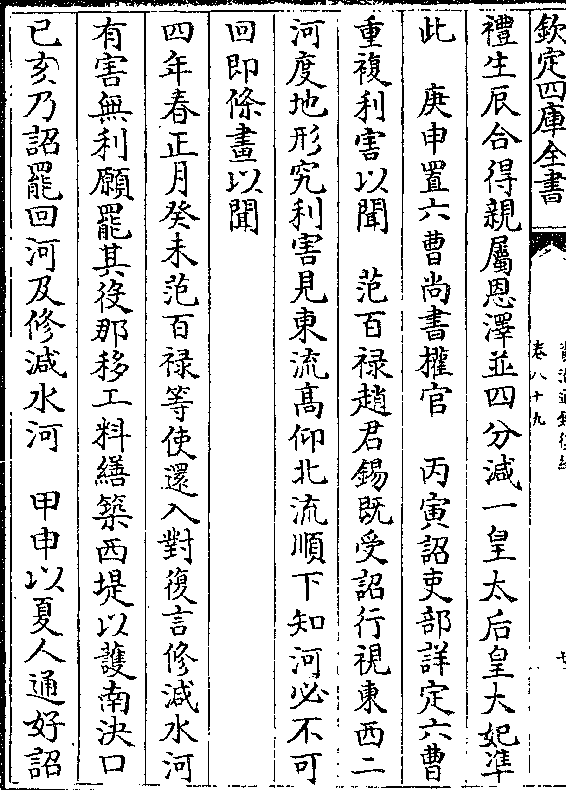 欽定四庫全書
卷八十九
禮生辰合得親屬恩澤並四分減一皇太后皇大妃準
此　庚申置六曹尚書權官　丙寅詔吏部詳定六曹
重複利害以聞　范百禄趙君錫既受詔行視東西二
河度地形究利害見東流髙仰北流順下知河必不可
回即條畫以聞
四年春正月癸未范百禄等使還入對復言修減水河
有害無利願罷其役那移工料繕築西堤以護南決口
己亥乃詔罷回河及修減水河　甲申以夏人通好詔